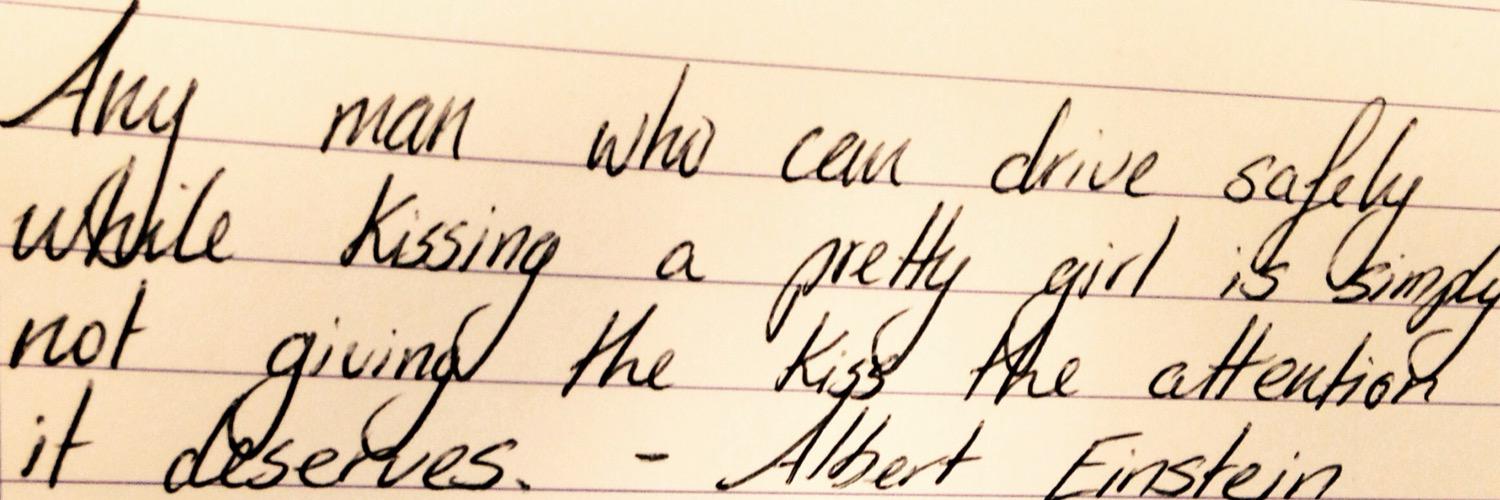 Any man who can drive safely
while kissing a pretty girl is simply
not giving the kiss the attention
it deserves. - Albert Einstein